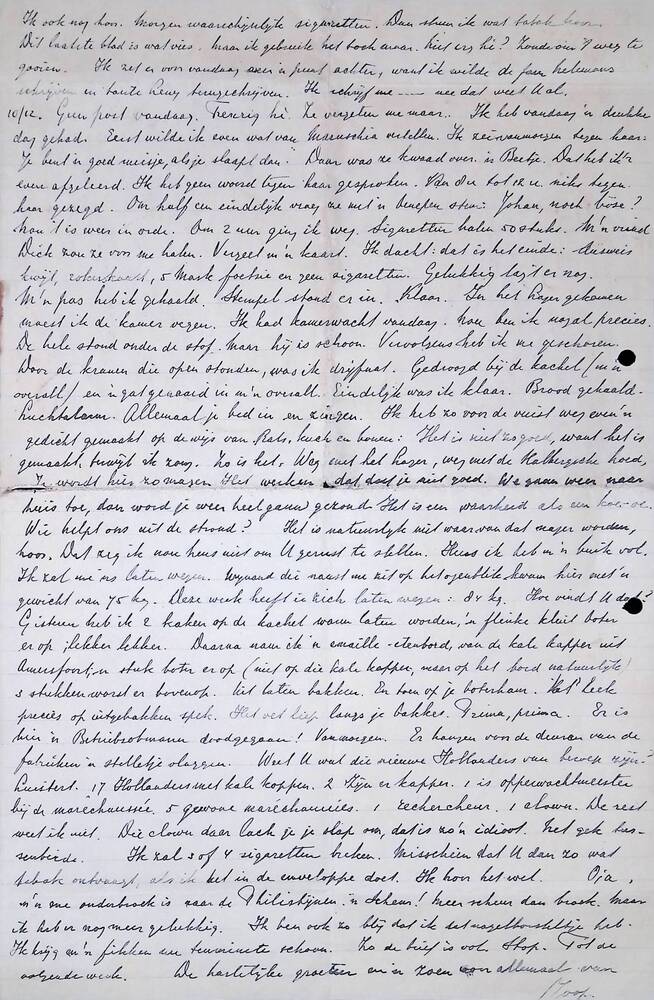 Ik ook nog hoor. Morgen waarschijnlijk sigaretten. Dan steun ik wat tabak hoor.
Dit laatste blad is wat vies. Maar ik gebruik het toch maar. Niet erg hè? Zonde om 't weg te
gooien. Ik zet er voor vandaag een punt achter, want ik wilde de fam helemans
schrijven en tante Leny terugschrijven. Ik schrijf me —— nee dat weet U al.
10/12. Geen post vandaag. Treurig hè. Ze vergeten me maar. Ik heb vandaag 'n drukke
dag gehad. Eerst wilde ik even wat van Maruschia vertellen. Ik zei vanmorgen tegen haar:
"Je bent 'n goed meisje, als je slaapt dan." Daar was ze kwaad over. 'n Beetje. Dat heb ik 'r
even afgeleerd. Ik heb geen woord tegen haar gesproken. Van 8 u tot 12 u. niks tegen
haar gezegd. Om half een eindelijk vroeg ze met 'n benepen stem: Johan, noch böse?
Nou 't is weer in orde. Om 2 uur ging ik weg. Sigaretten halen 50 stuks. M'n vriend
Dick zou ze voor me halen. Vergeet m'n kaart. Ik dacht: dat is het einde: Ausweis
kwijt, rokerskaart, 5 Mark foetsie en geen sigaretten. Gelukkig lag 't er nog.
M'n pas heb ik gehaald. Stempel stond er in. Klaar. In het lager gekomen
moest ik de kamer vegen. Ik had kamerwacht vandaag. Nou ben ik nogal precies.
De hele stond onder de stof. Maar hij is schoon. Vervolgens heb ik me geschoren.
Door de kranen die open stonden, was ik drijfnat. Gedroogd bij de kachel (m'n
overall) en 'n gat genaaid in m'n overall. Eindelijk was ik klaar. Brood gehaald.
Luchtalarm. Allemaal je bed in en zingen. Ik heb zo voor de vuist weg even 'n
gedicht gemaakt op de wijs van Rats, kuch en bonen: Het is niet zo goed, want het is
gemaakt, terwijl ik zong. Zo is het. Weg met het lager, weg met de Kalbergsche hoed,
Je wordt hier zo mager. Het werken dat doet je niet goed. We gaan weer naar
huis toe, dan word je weer heel gauw gezond Het is een waarheid als een koe-oe.
Wie helpt ons uit de stront? Het is natuurlijk niet waar van dat mager worden,
hoor. Dat zeg ik nou heus niet om U gerust te stellen. Heus ik heb m'n buik vol.
Ik zal me 'ns laten wegen. Wijnand die naast me zit op het ogenblik, kwam hier met 'n
gewicht van 75 kg. Deze week heeft ie zich laten wegen: 84 kg. Hoe vindt U dat?
Gisteren heb ik 2 kaken op de kachel warm laten worden, 'n flinke kluit boter
er op, lekker lekker. Daarna nam ik 'n emaille-etenbord, van de kale kapper uit
Amersfoort, 'n stuk boter er op (niet op die kale kapper, maar op het bord natuurlijk!
3 stukken worst er bovenop. Uit laten bakken. En toen op je boterham. 't Leek
precies op uitgebakken spek. Het vet liep langs je bakkes. Prima, prima. Er is
hier 'n Betriebsobmann doodgegaan! Vanmorgen. Er hangen voor de deuren van de
fabrieken 'n stelletje vlaggen. Weet U wat die nieuwe Hollanders van beroep zijn?
Luistert. 17 Hollanders met kale koppen. 2 Zijn er kapper. 1 is opperwachtmeester
bij de marechaussée, 5 gewone maréchaussées. 1 rechercheur. 1 clown. De rest
weet ik niet. Die clown daar lach je je slap om, dat is zo'n idioot. Net gek
Ik zal 3 of 4 sigaretten breken. Misschien dat U dan zo wat
tabak ontvangt, als ik het in de enveloppe doet. Ik hoor het wel. O ja,
m'n ene onderbroek is naar de Philistijnen. 'n Scheur! Meer scheur dan broek. Maar
ik heb er nog meer gelukkig. Ik ben ook zo blij dat ik dat nagelborsteltje heb.
Ik krijg m'n fikken nu tenminste schoon. Zo de brief is vol. Stop. Tot de
volgende week. De hartelijke groeten en 'n zoen voor allemaal van
Joop.